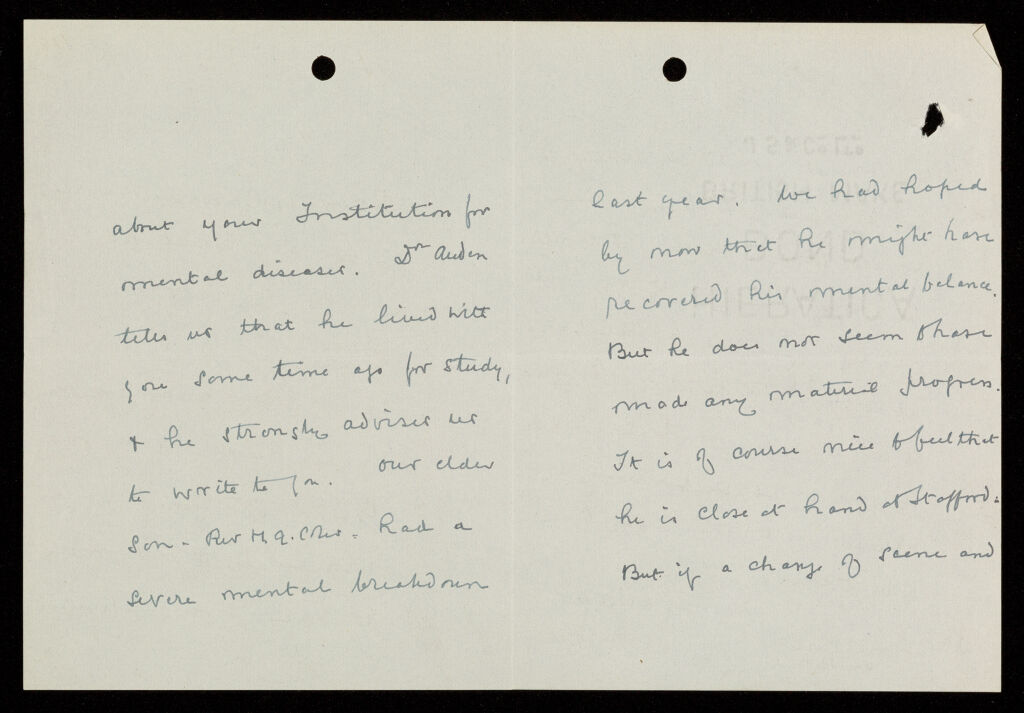 about your Institution for
mental diseases. Dr Auden
tells us that he lived with
you some time ago for study,
& he strongly advises us
to write to you. Our elder
son - Rev H. G.
 - had a
severe mental breakdown
last year. We had hoped
by now that he might have
recovered his mental balance.
But he does not seem to have
made any material progress.
It is of course nice to feel that
he is close at hand at Stafford.
But if a change of scene and
BOND